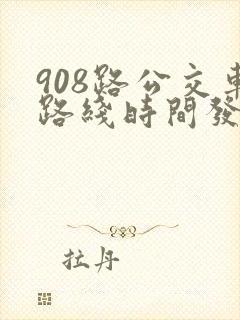 908路公交車
路綫時間發
拉丹